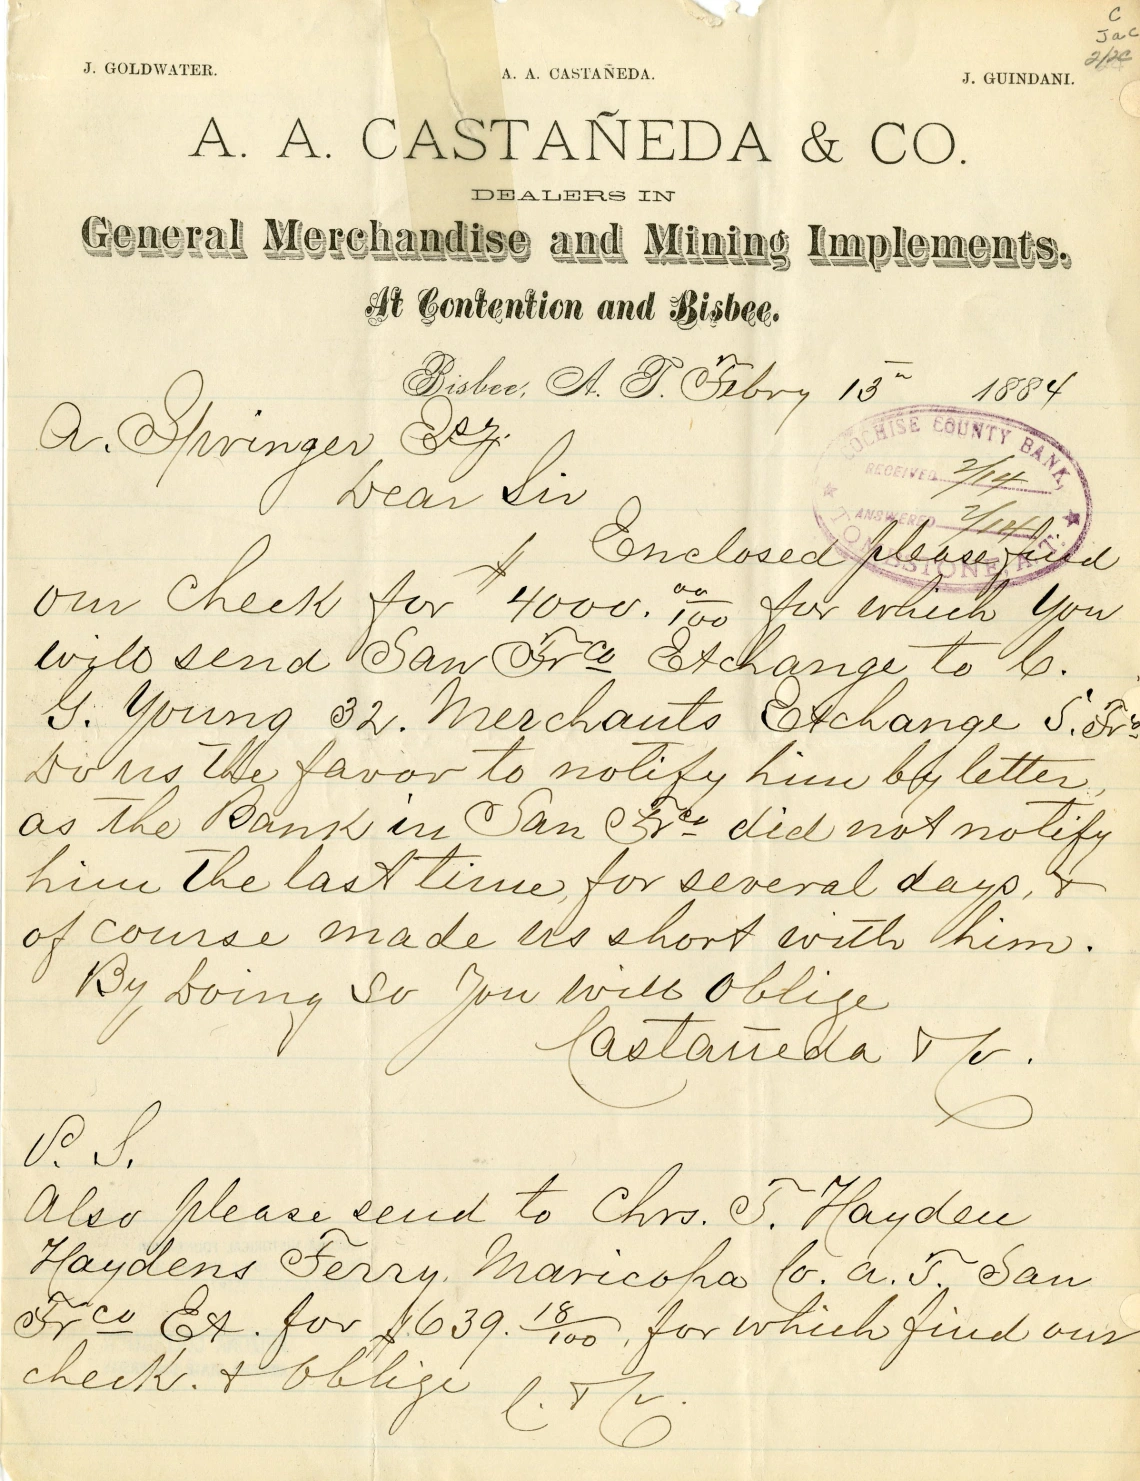 C
Jac
J. GOLDWATER. A. A. CASTAÑEDA. J. GUINDANI.
A. A. CASTAÑEDA & CO.
DEALERS IN
General Merchandise and Mining Implements.
At Contention and Bisbee.
Bisbee, A. T. Febry 13 1884
A. Springer Esq.
Dear Sir
COCHISE COUNTY BANK,
RECEIVED 2/14
ANSWERED 2/14
TOMBSTONE, A.T.
Enclosed please find
our check for $4000. 00/100 for which you
will send San Frco Exchange to C.
G. Young 32. Merchants Exchange S. Frco
Do us the favor to notify him by letter,
as the Bank in San Frco did not notify
him the last time, for several days, &
of course made us short with him.
By Doing So You will Oblige
Castañeda & Co.
P. S.
Also please send to Chrs. T. Hayden
Haydens Ferry. Maricopa Co. A. T. San
Frco Ex. for $639. 18/100, for which find our
check. & Oblige C. & Co.